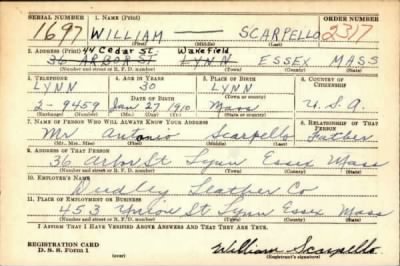 SERIAL NUMBER 1. NAME (Print) ORDER NUMBER
1697 WILLIAM — SCARPELLO 2317
(First) (Middle) (Last)
2. ADDRESS (Print) 44 Cedar St. Wakefield
36 ARBOR ST LYNN ESSEX MASS
(Number and street or R. F. D. number) (Town) (County) (State)
3. TELEPHONE 4. AGE IN YEARS 5. PLACE OF BIRTH 6. COUNTRY OF CITIZENSHIP
LYNN 30 LYNN
DATE OF BIRTH (Town or county)
2-9459 Jan 27 1910 Mass U.S.A.
(Exchange) (Number) (Mo.) (Day) (Yr.) (State or country)
7. NAME OF PERSON WHO WILL ALWAYS KNOW YOUR ADDRESS 8. RELATIONSHIP OF THAT PERSON
Mr Antonio Scarpello Father
(Mr., Mrs., Miss) (First) (Middle) (Last)
9. ADDRESS OF THAT PERSON
36 Arbor St Lynn Essex Mass
(Number and street or R. F. D. number) (Town) (County) (State)
10. EMPLOYER'S NAME
Dudley Leather Co
11. PLACE OF EMPLOYMENT OR BUSINESS
453 Union St Lynn Essex Mass
(Number and street or R. F. D. number) (Town) (County) (State)
I AFFIRM THAT I HAVE VERIFIED ABOVE ANSWERS AND THAT THEY ARE TRUE.
REGISTRATION CARD William Scarpello
D. S. S. Form 1 (over) (Registrant's signature)